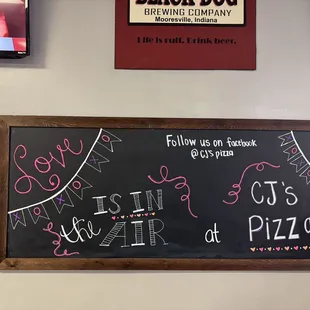 BLACK DOG
BREWING COMPANY
Mooresville, Indiana
Life is ruff. Drink beer.
Follow us on facebook
@ CJ's pizza
Love
IS IN
the AIR at
CJ's
Pizza